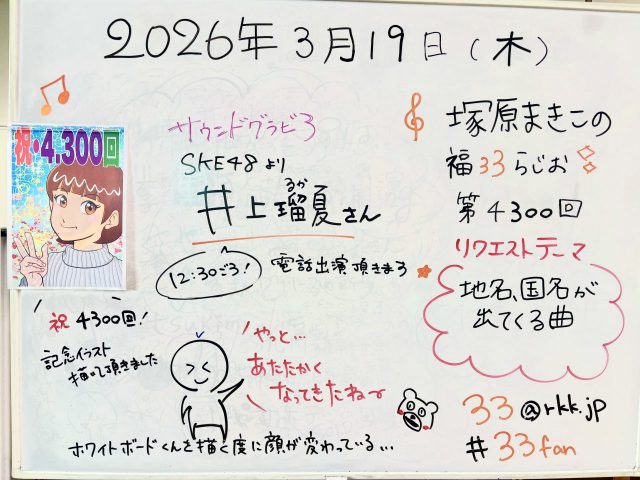 2026年3月19日(木)
祝・4,300回
サウンドグラビ3
SKE48より
るか
井上瑠夏さん
12:30ごろ!
電話出演頂きます
祝 4300回!
記念イラスト
描いて頂きました
やっと...
あたたかく
なってきたね〜
ホワイトボードくんを描く度に顔が変わっている...
塚原まきこの
福33らじお
第4300回
リクエストテーマ
地名、国名が
出てくる曲
33@rkk.jp
#33fan